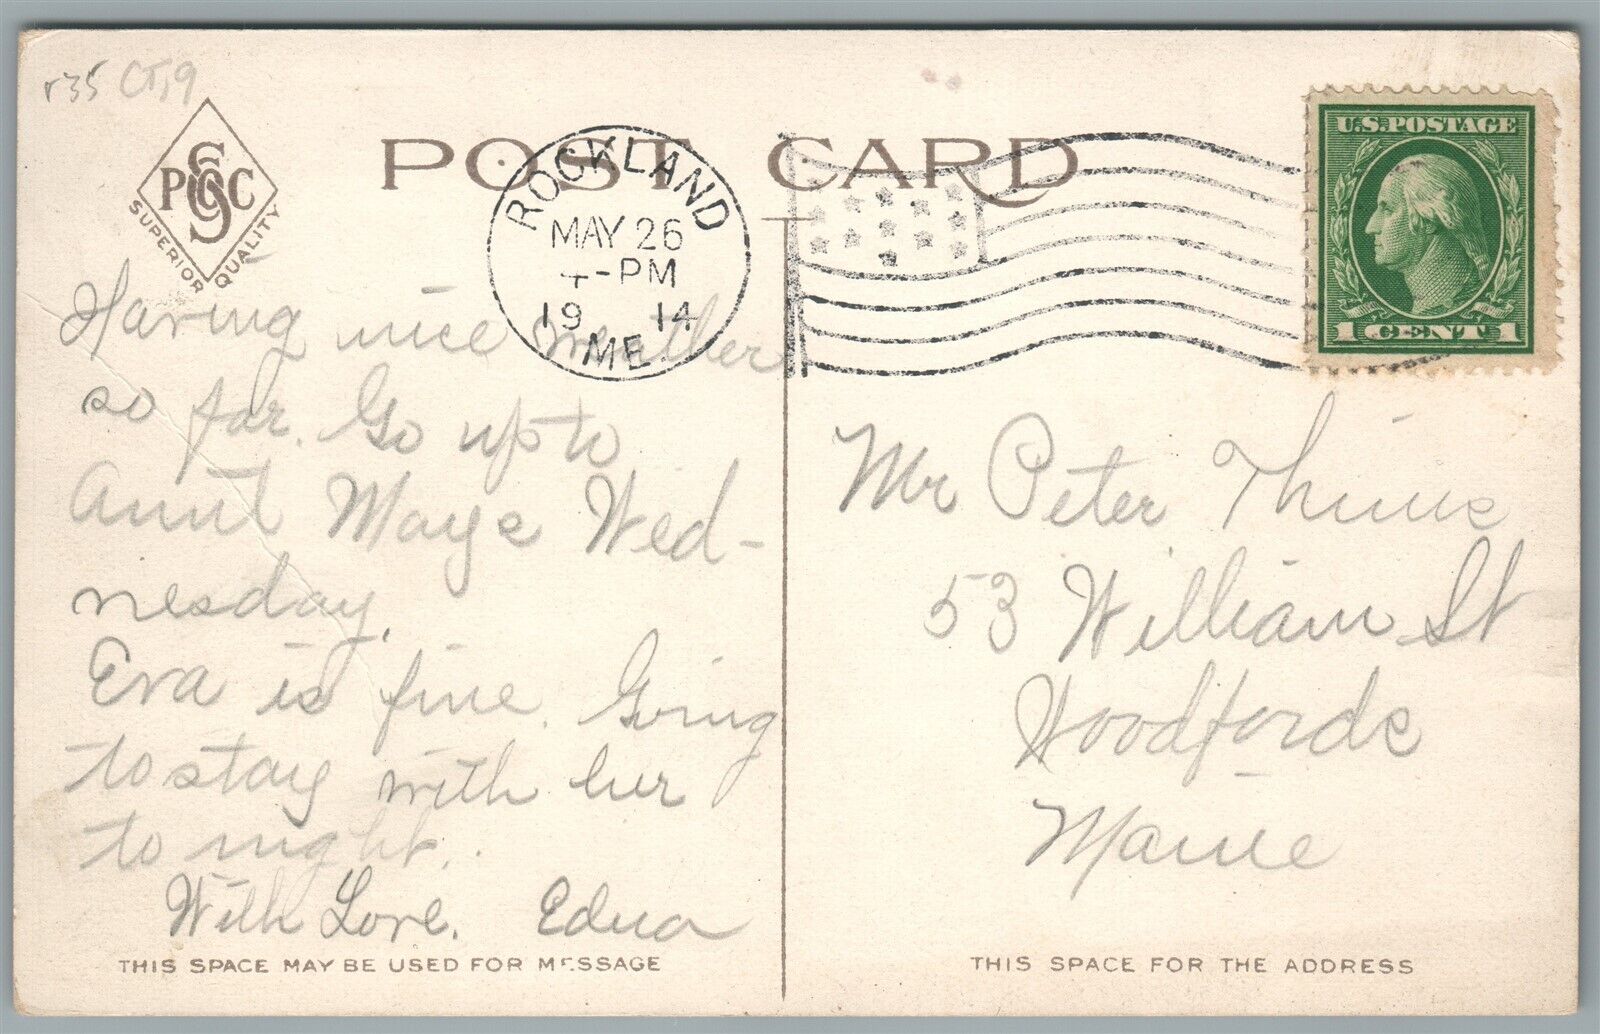 r35 CT,9
PSCC
SUPERIOR QUALITY
POST CARD
ROCKLAND
MAY 26
4-PM
19 14
ME.
U.S. POSTAGE
1 CENT 1
Having nice weather
so far. Go up to
Aunt Mays Wed-
nesday.
Eva is fine. Going
to stay with her
to night.
With Love. Edna
THIS SPACE MAY BE USED FOR MESSAGE
Mr Peter
53 William St
Woodfords
Maine
THIS SPACE FOR THE ADDRESS